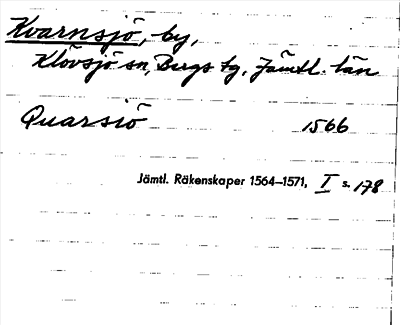 Kvarnsjö, by,
Klövsjö sn, Bergs tg, Jämtl. län
Quarsiö 1566
Jämtl. Räkenskaper 1564–1571, I s. 178